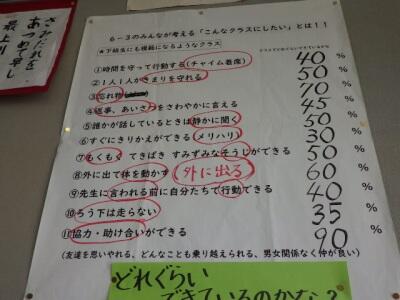 さみだれを
あつめて早し
最上川
6－3のみんなが考える「こんなクラスにしたい」とは！！
★下級生にも模範になるようなクラス
①時間を守って行動する(チャイム着席) 40%
②1人1人がきまりを守れる 50%
③忘れ物 70%
④返事、あいさつをさわやかに言える 45%
⑤誰かが話しているときは静かに聞く 50%
⑥すぐにきりかえができる(メリハリ) 30%
⑦もくもく てきぱき すみずみなそうじができる 50%
⑧外に出て体を動かす 外に出る 60%
⑨先生に言われる前に自分たちで行動できる 40%
⑩ろう下は走らない 35%
⑪協力・助け合いができる 90%
(友達を思いやれる、どんなことも乗り越えられる、男女関係なく仲が良い)
どれぐらい
できているのかな？